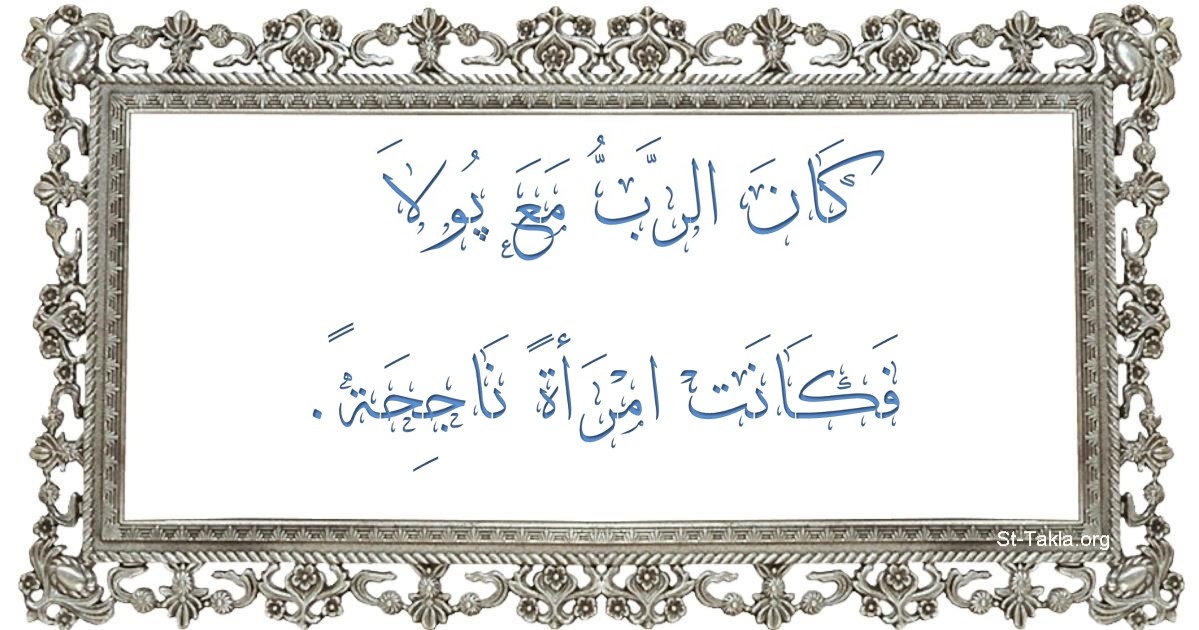 كَانَ الرَّبُّ مَعَ پُولاَ
فَكَانَت امْرَأةً نَاجِحَةً.
St-Takla.org